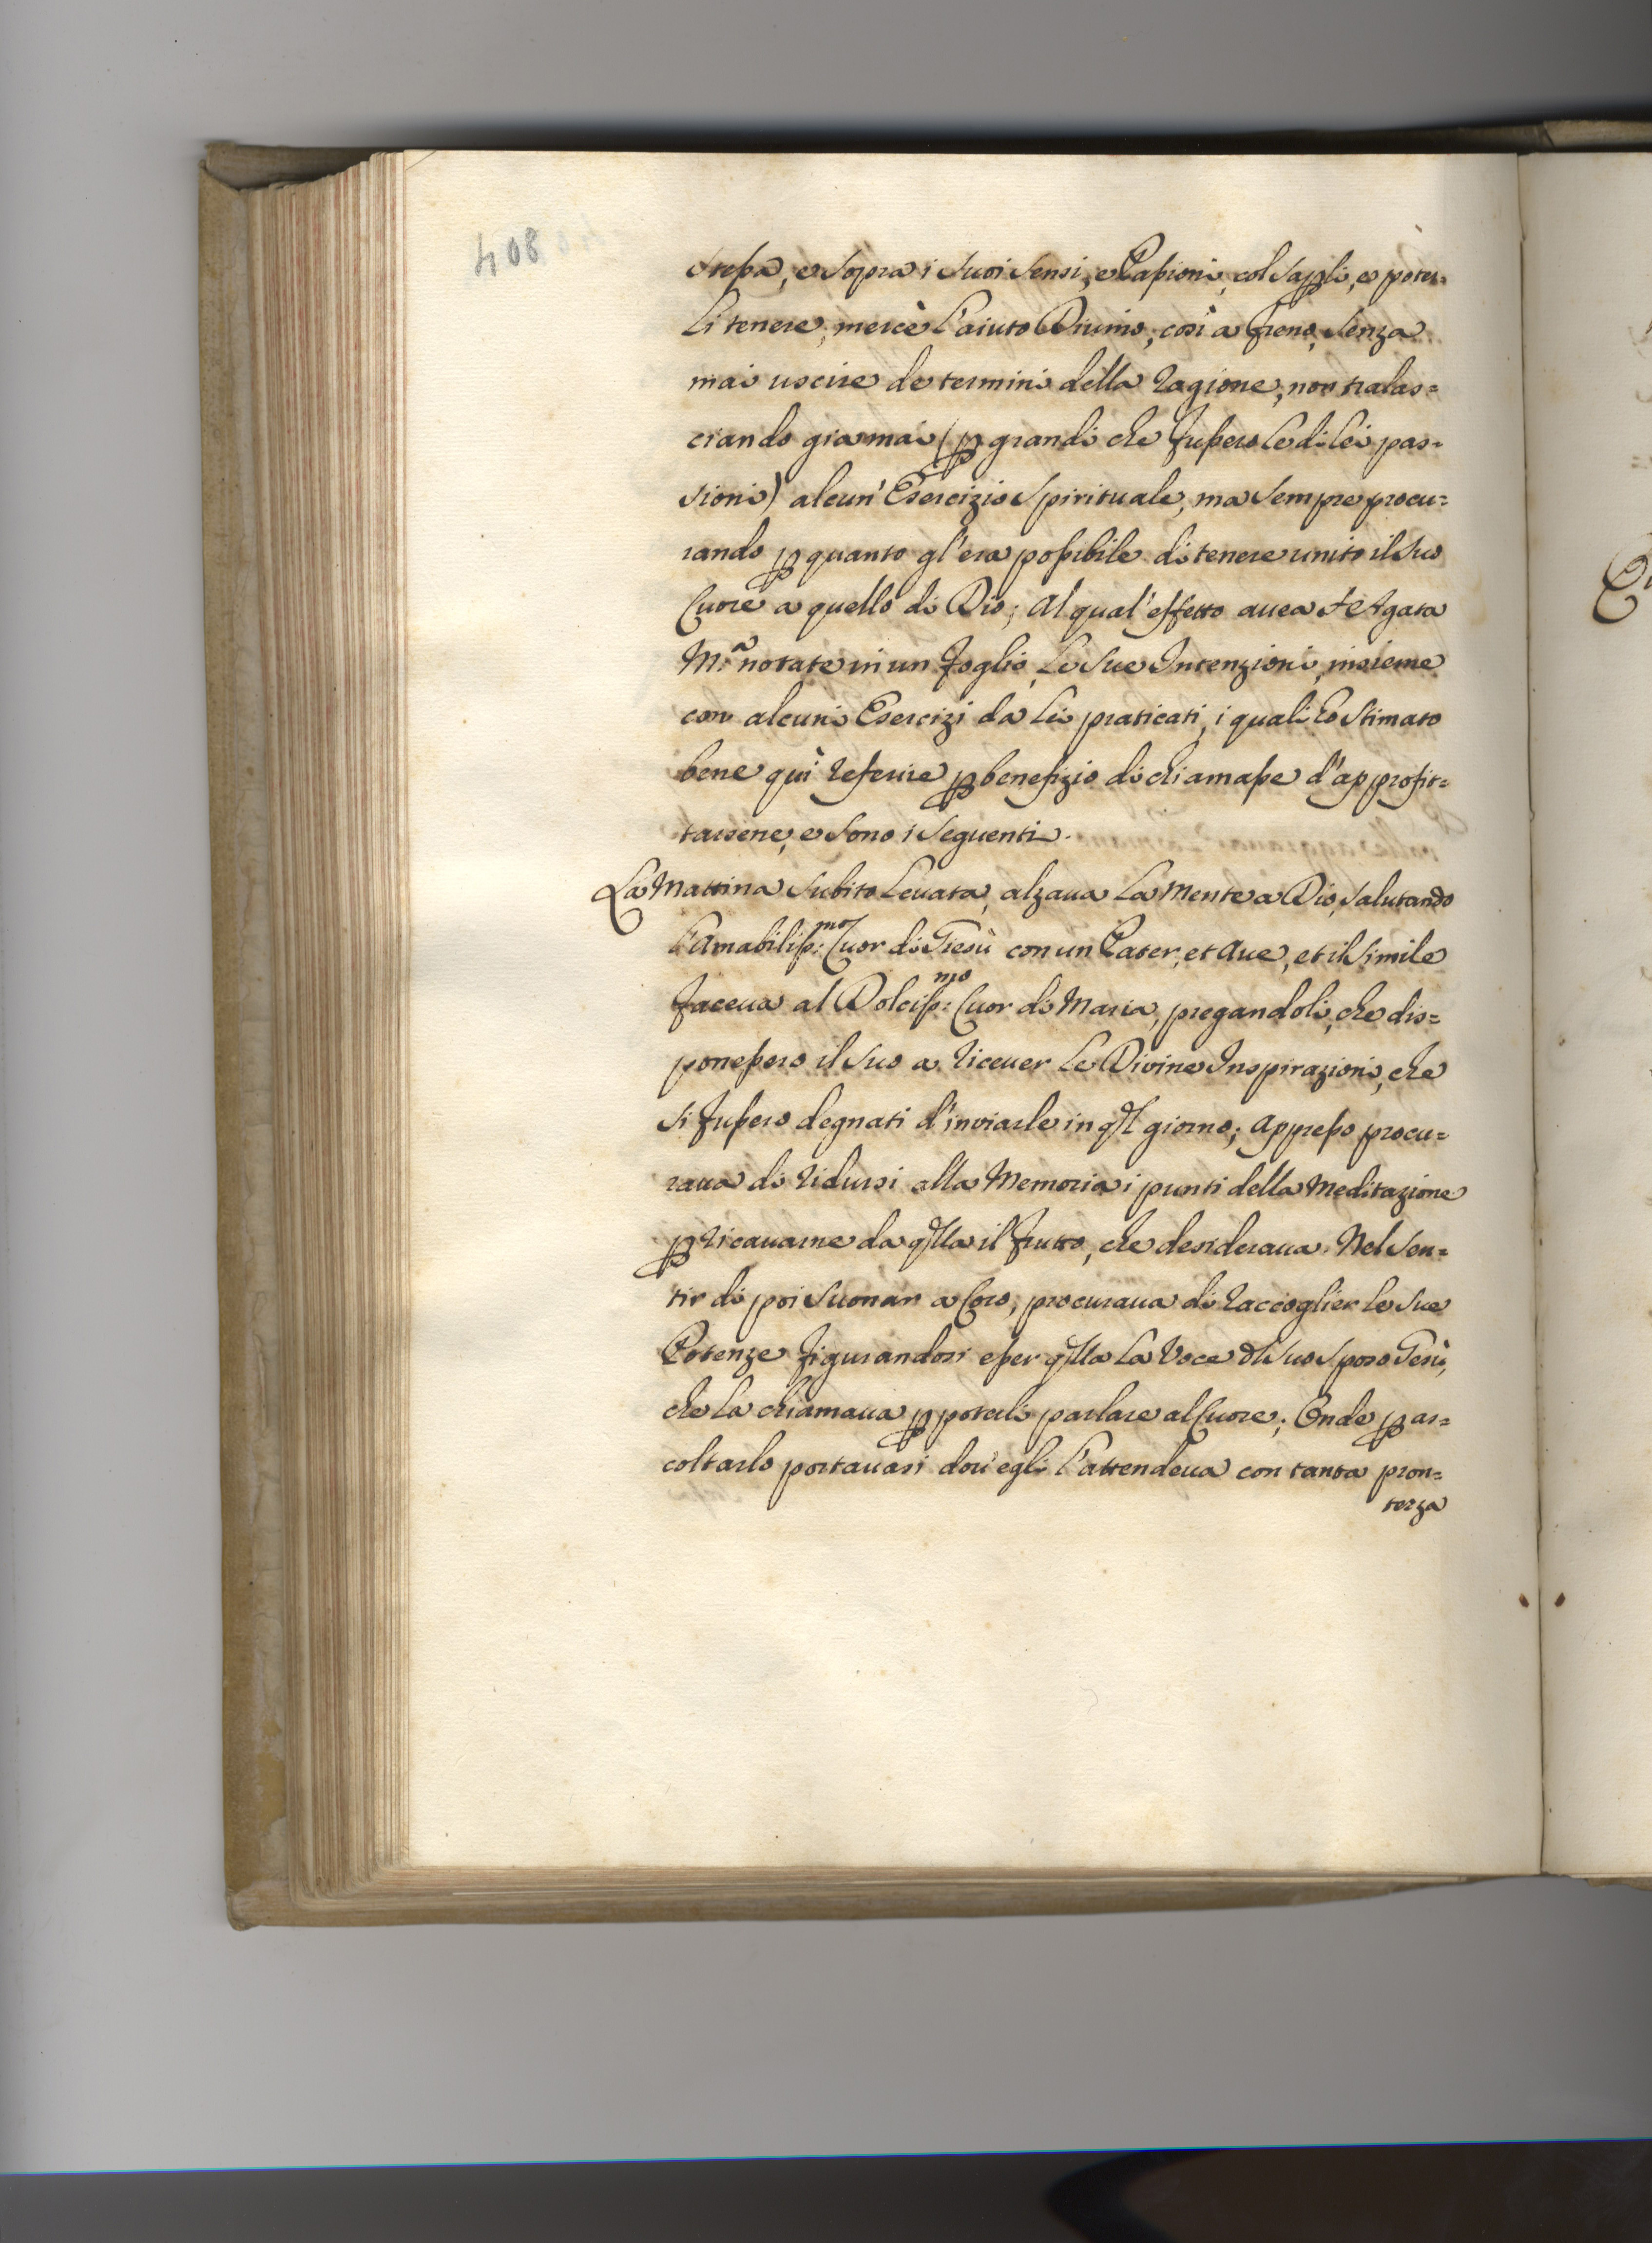 408
stessa, e sopra i suoi sensi, e Passioni, col saperli, e poter=
li tenere, mercè l'aiuto Diuino, così a freno, senza
mai uscire de termini della ragione, non tralas=
ciando giamai (p grandi che fussero le di lei pas=
sioni) alcun' Esercizio spirituale, ma sempre procu=
rando p quanto gl'era possibile di tenere unito il suo
Cuore a quello di Dio; Al qual' effetto auea S.r Agata
M.ª notate in un foglio le sue Intenzioni, insieme
con alcuni Esercizi da lei praticati, i quali ho stimato
bene quì referire p benefizio di chi amasse d'approfit=
tarsene, e sono i seguenti.
La Mattina subito leuata, alzaua la mente a Dio, salutando
l'Amabiliss:mo Cuor di Giesù con un Pater, et Aue, et il simile
faceua al Dolciss:mo Cuor di Maria, pregandoli, che dis=
ponessero il suo a riceuer le Divine Inspirazioni, che
si fussero degnati d'inviarle in ql giorno; appresso procu=
raua di ridursi alla Memoria i punti della Meditazione
p ricauarne da qlla il frutto, che desideraua. Nel sen=
tir di poi suonar a Coro, procuraua di raccoglier le sue
Potenze figurandosi esser qlla la Voce dl suo sposo Gesù,
che la chiamaua p poterli parlare al Cuore; Onde p as=
coltarlo portauasi dou'egli l'attendeua con tanta pron=
tezza